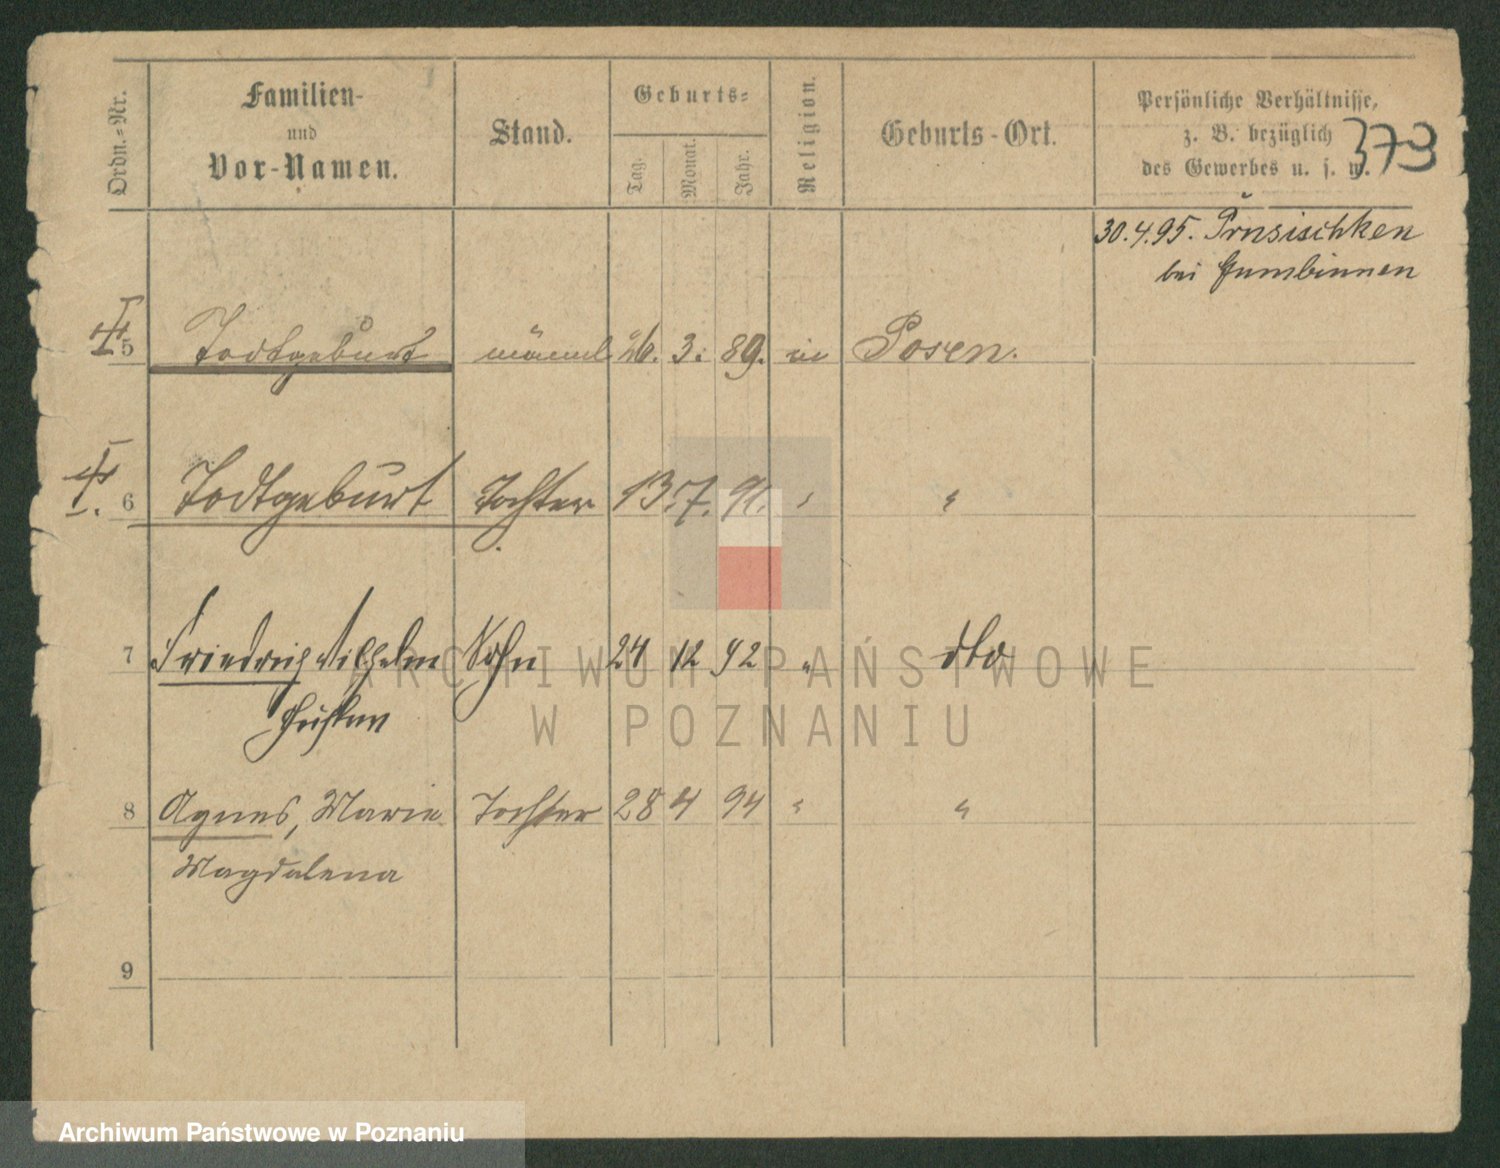 Ordn.=Nr. Familien- und Vor-Namen. Stand. Geburts= Tag. Monat. Jahr. Religion. Geburts-Ort. Persönliche Verhältnisse, z. B. bezüglich des Gewerbes u. s. w.
373
30.4.95. Prusischken
bei Gumbinnen
5 Todtgeburt männl 26. 3. 89. Posen.
6 Todtgeburt Tochter 13. 7. 91. " "
7 Friedrich Wilhelm Sohn 24 12 92 " dto
8 Agnes, Marie Tochter 28 4 94 " "
Magdalena
9
ARCHIWUM PAŃSTWOWE
W POZNANIU
Archiwum Państwowe w Poznaniu